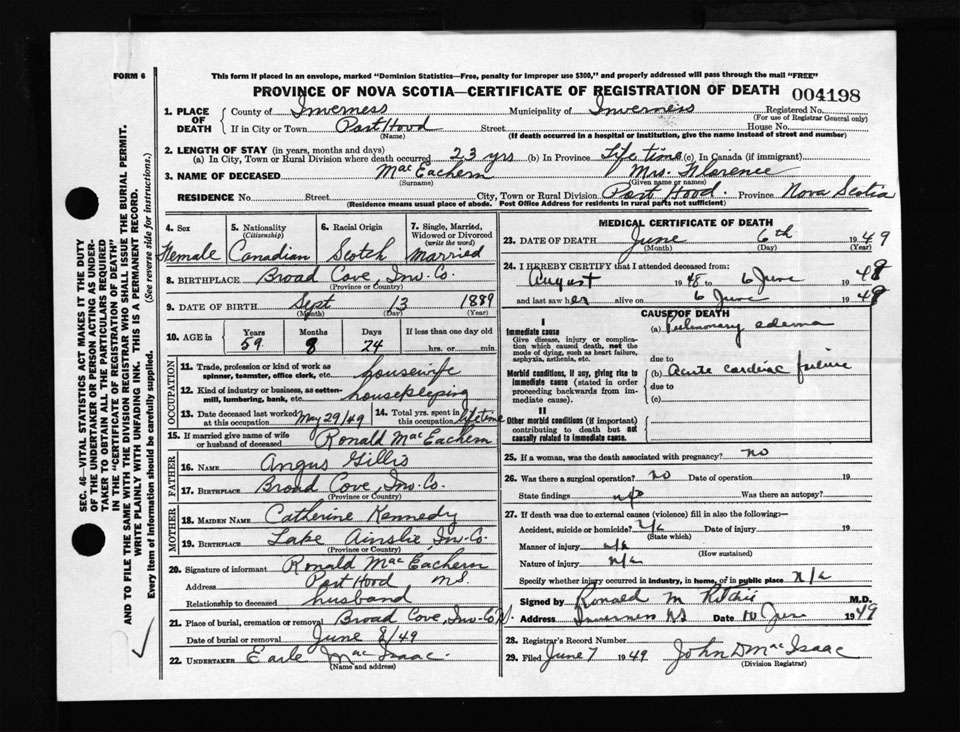 FORM 6
This form if placed in an envelope, marked "Dominion Statistics—Free, penalty for improper use $300," and properly addressed will pass through the mail "FREE"
PROVINCE OF NOVA SCOTIA—CERTIFICATE OF REGISTRATION OF DEATH 004198
1. PLACE OF DEATH County of Inverness Municipality of Inverness Registered No.
(For use of Registrar General only)
If in City or Town Port Hood Street House No.
(Name) (If death occurred in a hospital or institution, give the name instead of street and number)
2. LENGTH OF STAY (in years, months and days)
(a) In City, Town or Rural Division where death occurred 23 yrs (b) In Province Life time (c) In Canada (if immigrant)
3. NAME OF DECEASED MacEachern Mrs. Florence
(Surname) (Given name or names)
RESIDENCE No. Street City, Town or Rural Division Port Hood. Province Nova Scotia
(Residence means usual place of abode. Post Office Address for residents in rural parts not sufficient)
4. Sex Female
5. Nationality (Citizenship) Canadian
6. Racial Origin Scotch
7. Single, Married, Widowed or Divorced (write the word) Married
8. BIRTHPLACE Broad Cove, Inv. Co.
(Province or Country)
9. DATE OF BIRTH Sept 13 1889
(Month) (Day) (Year)
10. AGE in Years 59 Months 8 Days 24 If less than one day old hrs. or min.
OCCUPATION
11. Trade, profession or kind of work as spinner, teamster, office clerk, etc. housewife
12. Kind of industry or business, as cotton-mill, lumbering, bank, etc. housekeeping
13. Date deceased last worked at this occupation May 29/49 14. Total yrs. spent in this occupation lifetime
15. If married give name of wife or husband of deceased Ronald MacEachern
FATHER
16. NAME Angus Gillis
17. BIRTHPLACE Broad Cove, Inv. Co.
(Province or Country)
MOTHER
18. MAIDEN NAME Catherine Kennedy
19. BIRTHPLACE Lake Ainslie, Inv. Co.
(Province or Country)
20. Signature of informant Ronald MacEachern
Address Port Hood N.S.
Relationship to deceased husband
21. Place of burial, cremation or removal Broad Cove, Inv. Co.
Date of burial or removal June 8/49
22. UNDERTAKER Earle MacIsaac.
(Name and address)
MEDICAL CERTIFICATE OF DEATH
23. DATE OF DEATH June 6th 1949
(Month) (Day) (Year)
24. I HEREBY CERTIFY that I attended deceased from:
August 1948 to 6 June 1949
and last saw her alive on 6 June 1949
CAUSE OF DEATH
I
Immediate cause
Give disease, injury or complication which caused death, not the mode of dying, such as heart failure, asphyxia, asthenia, etc.
(a) Pulmonary edema
due to
Morbid conditions, if any, giving rise to immediate cause (stated in order proceeding backwards from immediate cause).
(b) Acute cardiac failure
due to
(c)
II
Other morbid conditions (if important) contributing to death but not causally related to immediate cause.
25. If a woman, was the death associated with pregnancy? no
26. Was there a surgical operation? no Date of operation 19
State findings n/a Was there an autopsy?
27. If death was due to external causes (violence) fill in also the following:—
Accident, suicide or homicide? n/a Date of injury 19
(State which)
Manner of injury n/a
(How sustained)
Nature of injury n/a
Specify whether injury occurred in industry, in home, or in public place n/a
Signed by Ronald M Ritchie M.D.
Address Inverness NS Date 10 June 1949
28. Registrar's Record Number
29. Filed June 7 1949 John D MacIsaac
(Division Registrar)
SEC. 46—VITAL STATISTICS ACT MAKES IT THE DUTY
OF THE UNDERTAKER OR PERSON ACTING AS UNDER-
TAKER TO OBTAIN ALL THE PARTICULARS REQUIRED
IN THE "CERTIFICATE OF REGISTRATION OF DEATH"
AND TO FILE THE SAME WITH THE DIVISION REGISTRAR WHO SHALL ISSUE THE BURIAL PERMIT.
WRITE PLAINLY WITH UNFADING INK. THIS IS A PERMANENT RECORD.
Every item of information should be carefully supplied. (See reverse side for instructions.)